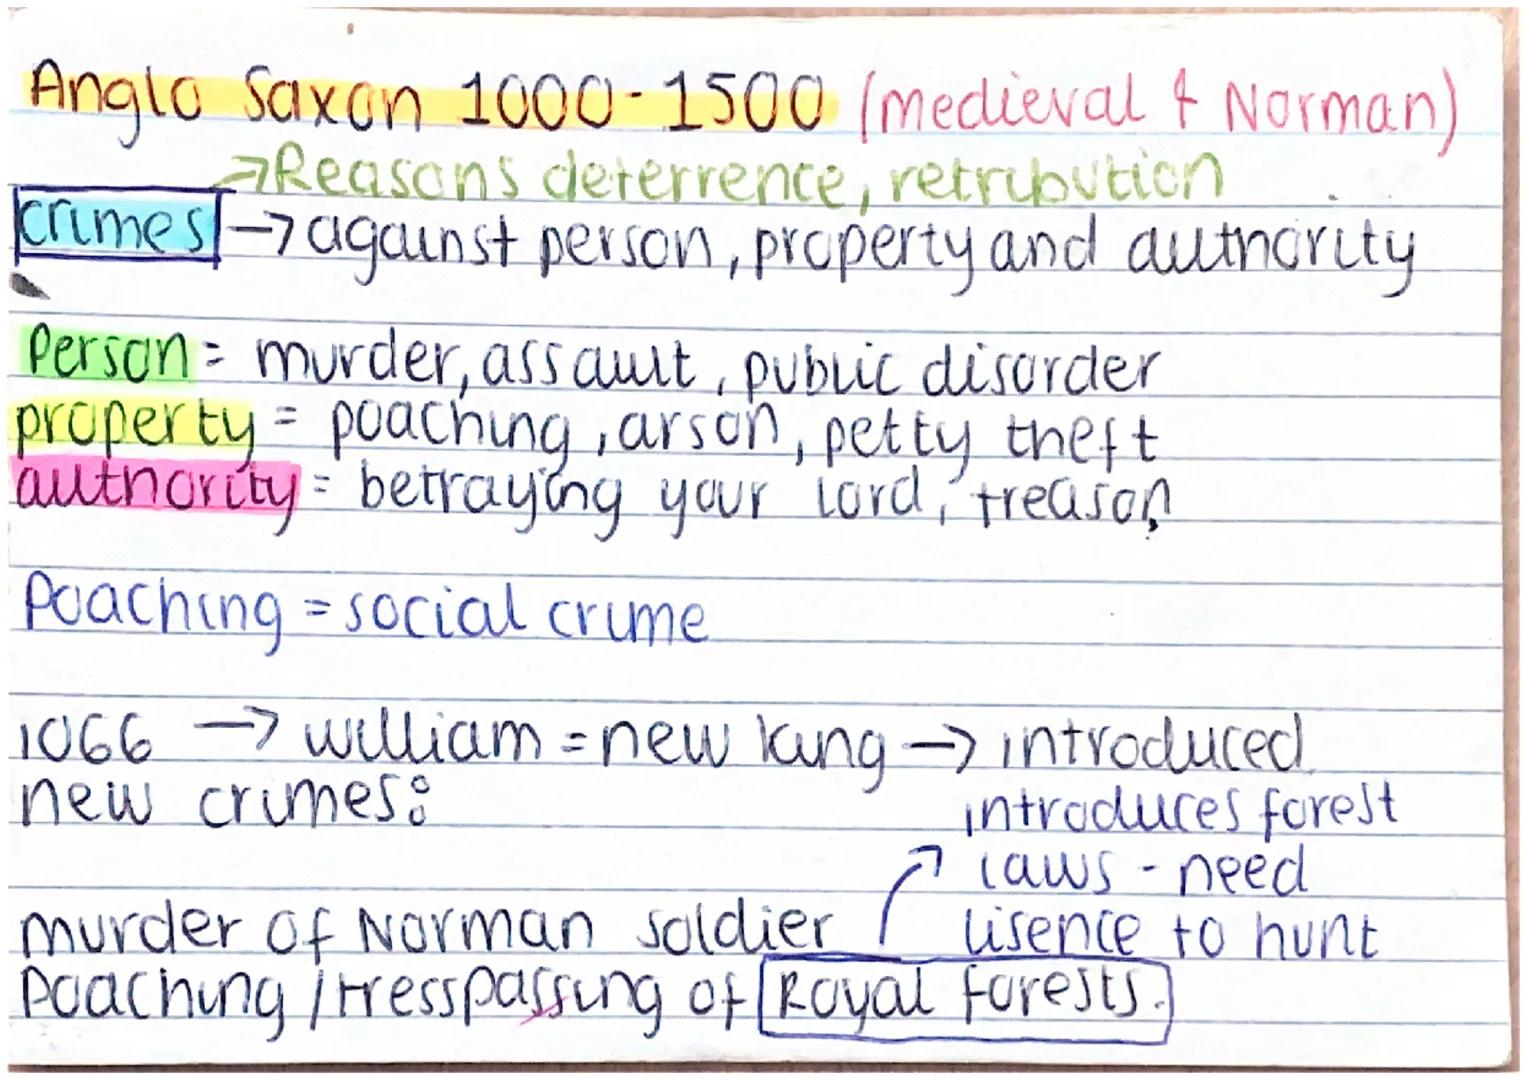 Anglo Saxon 1000-1500 (medieval & Norman)
→Reasons deterrence, retribution
crimes → against person, property and authority
Person = murder, assault, public disorder
property = poaching, arson, petty theft
authority = betraying your lord, treason
Poaching = social crime
1066 → william = new king → introduced
new crimes:
introduces forest
laws - need
lisence to hunt
murder of Norman soldier
Poaching / tresspassing of Royal forests.